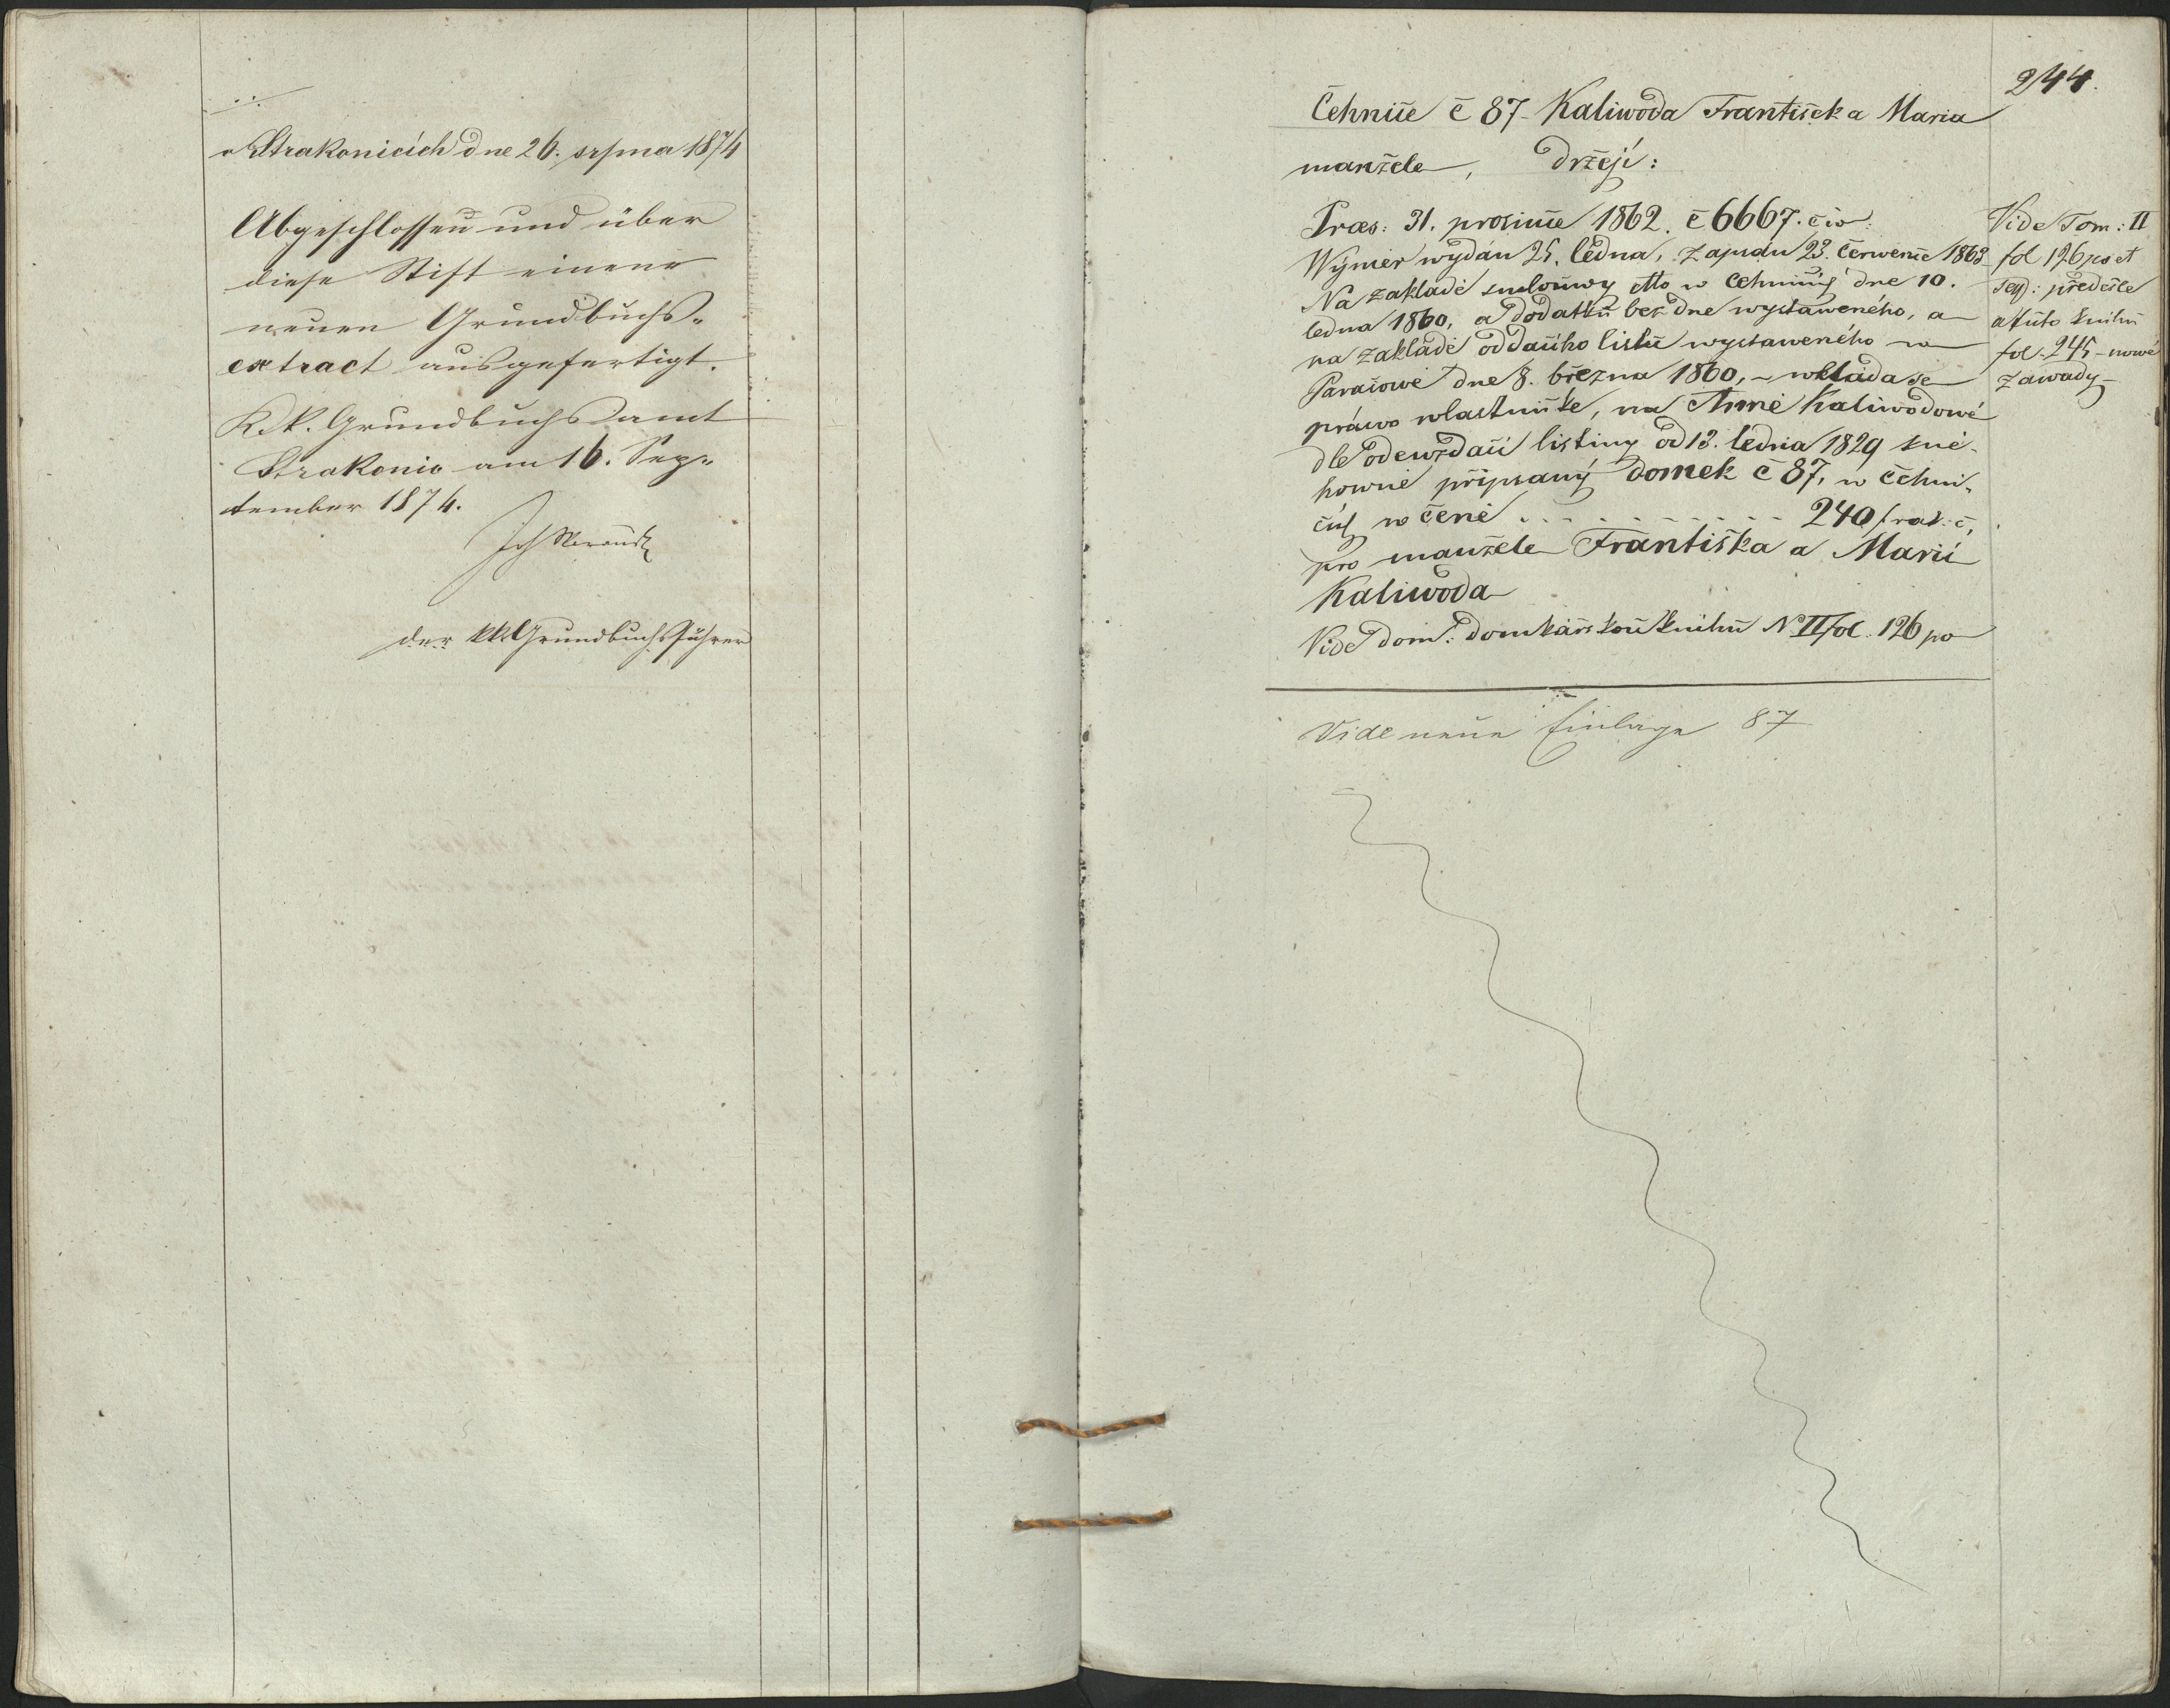 v Strakonicích dne 26. srpna 1874
Abgeschlossen und über
diese Stift einen
neuen Grundbuchs-
extract ausgefertigt.
K. k. Grundbuchsamt
Strakonic am 16. Sep-
tember 1874.
der kk Grundbuchsführer
244.
Čehnice č 87 - Kaliwoda František a Maria
manžele, držeji:
Præs: 31. prosince 1862. č 6667. civ:
Wýměr wydán 25. ledna, zapsán 23. července 1863
Na zakladě smlouwy dtto w Čehnicých dne 10.
ledna 1860, a dodatku bez dne wystaweného, a
na zakladě oddacího listu wystaweného w
Paračowě dne 8. března 1860, - wkládá se
práwo wlastnické, na Anně Kaliwodowé
dle odewzdací listiny od 13. ledna 1829 kně-
howně připsaný domek č 87, w Čehni-
cých w ceně . . . . . . . . . . 240 f rak: č,
pro manžele Františka a Marii
Kaliwoda
Vide dom: domkářskou knihu N II fol. 126 po
Vide Tom: II
fol 126 po et
seq: předešle
a tuto knihu
fol. 245 - nowé
zawady -
Vide neue Einlage 87